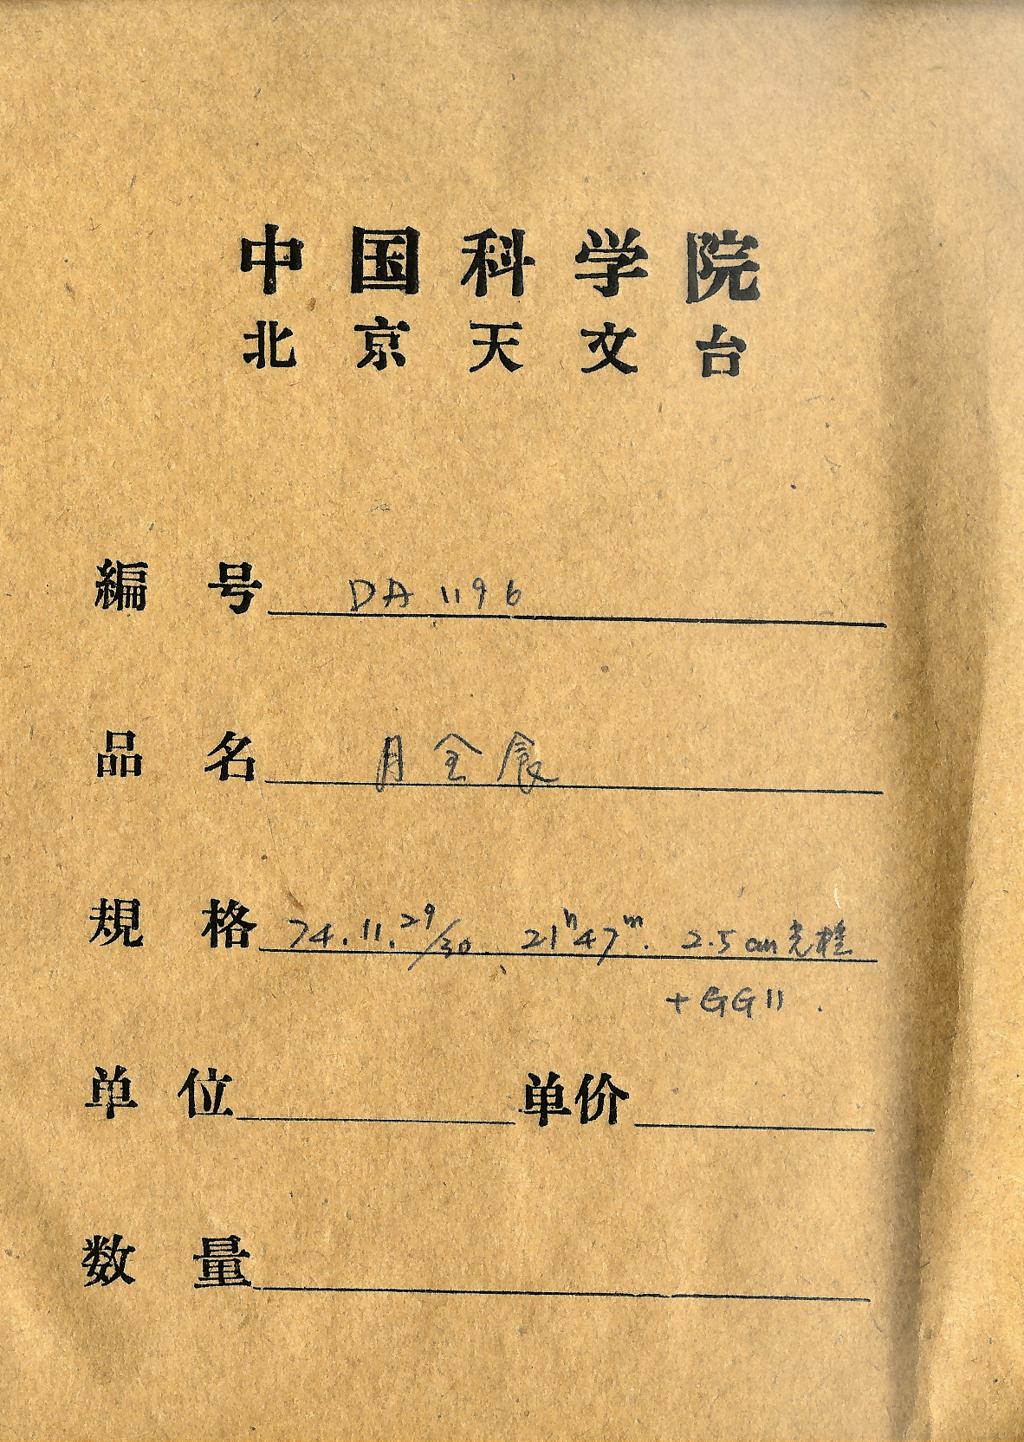 中国科学院
北京天文台
編号 DA 1196
品名 月全食
規格 74.11.29/30. 21h47m. 2.5cm光栏
+GG11.
单位 单价
数量